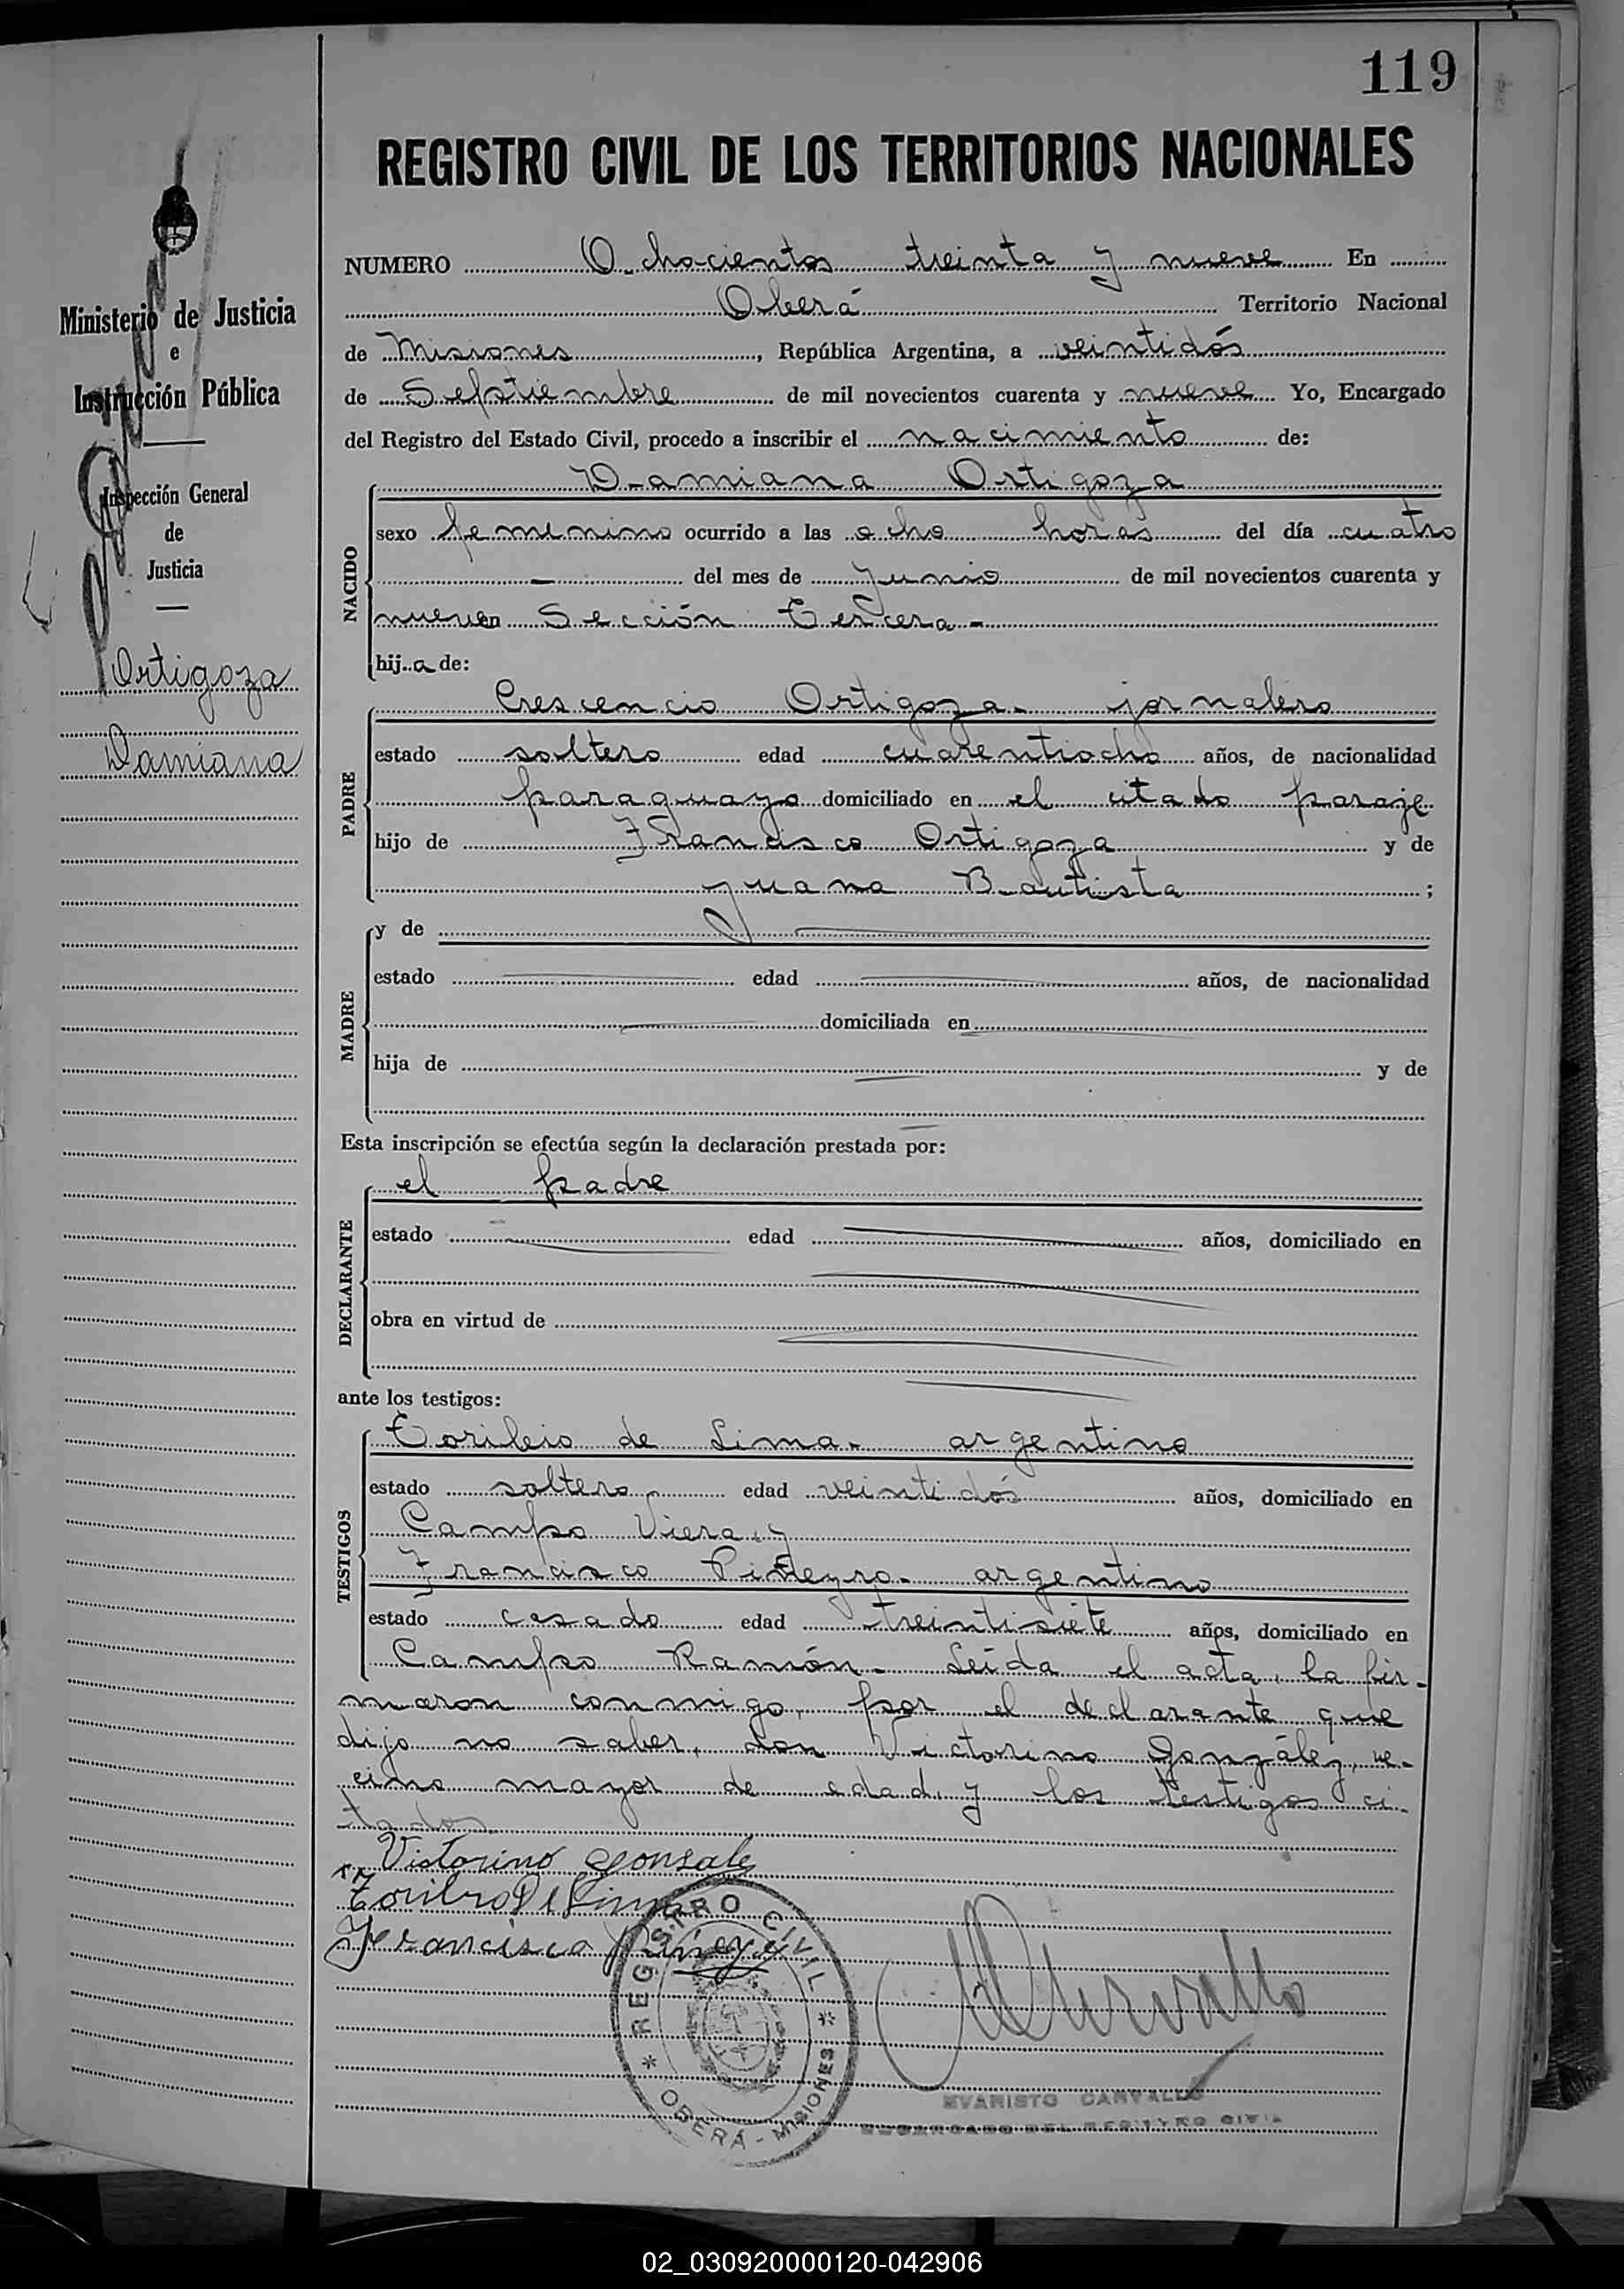 119
REGISTRO CIVIL DE LOS TERRITORIOS NACIONALES
Ministerio de Justicia
e
Instrucción Pública
Inspección General
de
Justicia
Ortigoza
Damiana
NUMERO Ochocientos treinta y nueve En
Oberá Territorio Nacional
de Misiones, República Argentina, a veintidós
de Septiembre de mil novecientos cuarenta y nueve Yo, Encargado
del Registro del Estado Civil, procedo a inscribir el nacimiento de:
NACIDO
Damiana Ortigoza
sexo femenino ocurrido a las ocho horas del día cuatro
- del mes de Junio de mil novecientos cuarenta y
nueve en Sección Tercera-
hija de:
PADRE
Crescencio Ortigoza- jornalero
estado soltero edad cuarentiocho años, de nacionalidad
paraguayo domiciliado en el citado paraje
hijo de Francisco Ortigoza y de
Juana Bautista ;
MADRE
y de
estado edad años, de nacionalidad
domiciliada en
hija de y de
Esta inscripción se efectúa según la declaración prestada por:
DECLARANTE
el padre
estado edad años, domiciliado en
obra en virtud de
ante los testigos:
TESTIGOS
Toribio de Lima- argentino
estado soltero edad veintidós años, domiciliado en
Campo Viera, y
Francisco Piñeyro- argentino
estado casado edad treintisiete años, domiciliado en
Campo Ramón- Leída el acta, la fir-
maron conmigo, por el declarante que
dijo no saber, don Victorino González, ve-
cino mayor de edad, y los testigos ci-
tados
Victorino Gonsales
Toribio De Lima
Francisco Piñeyro
REGISTRO CIVIL
OBERÁ - MISIONES
EVARISTO CARVALLO
ENCARGADO DEL REGISTRO CIVIL
02_030920000120-042906